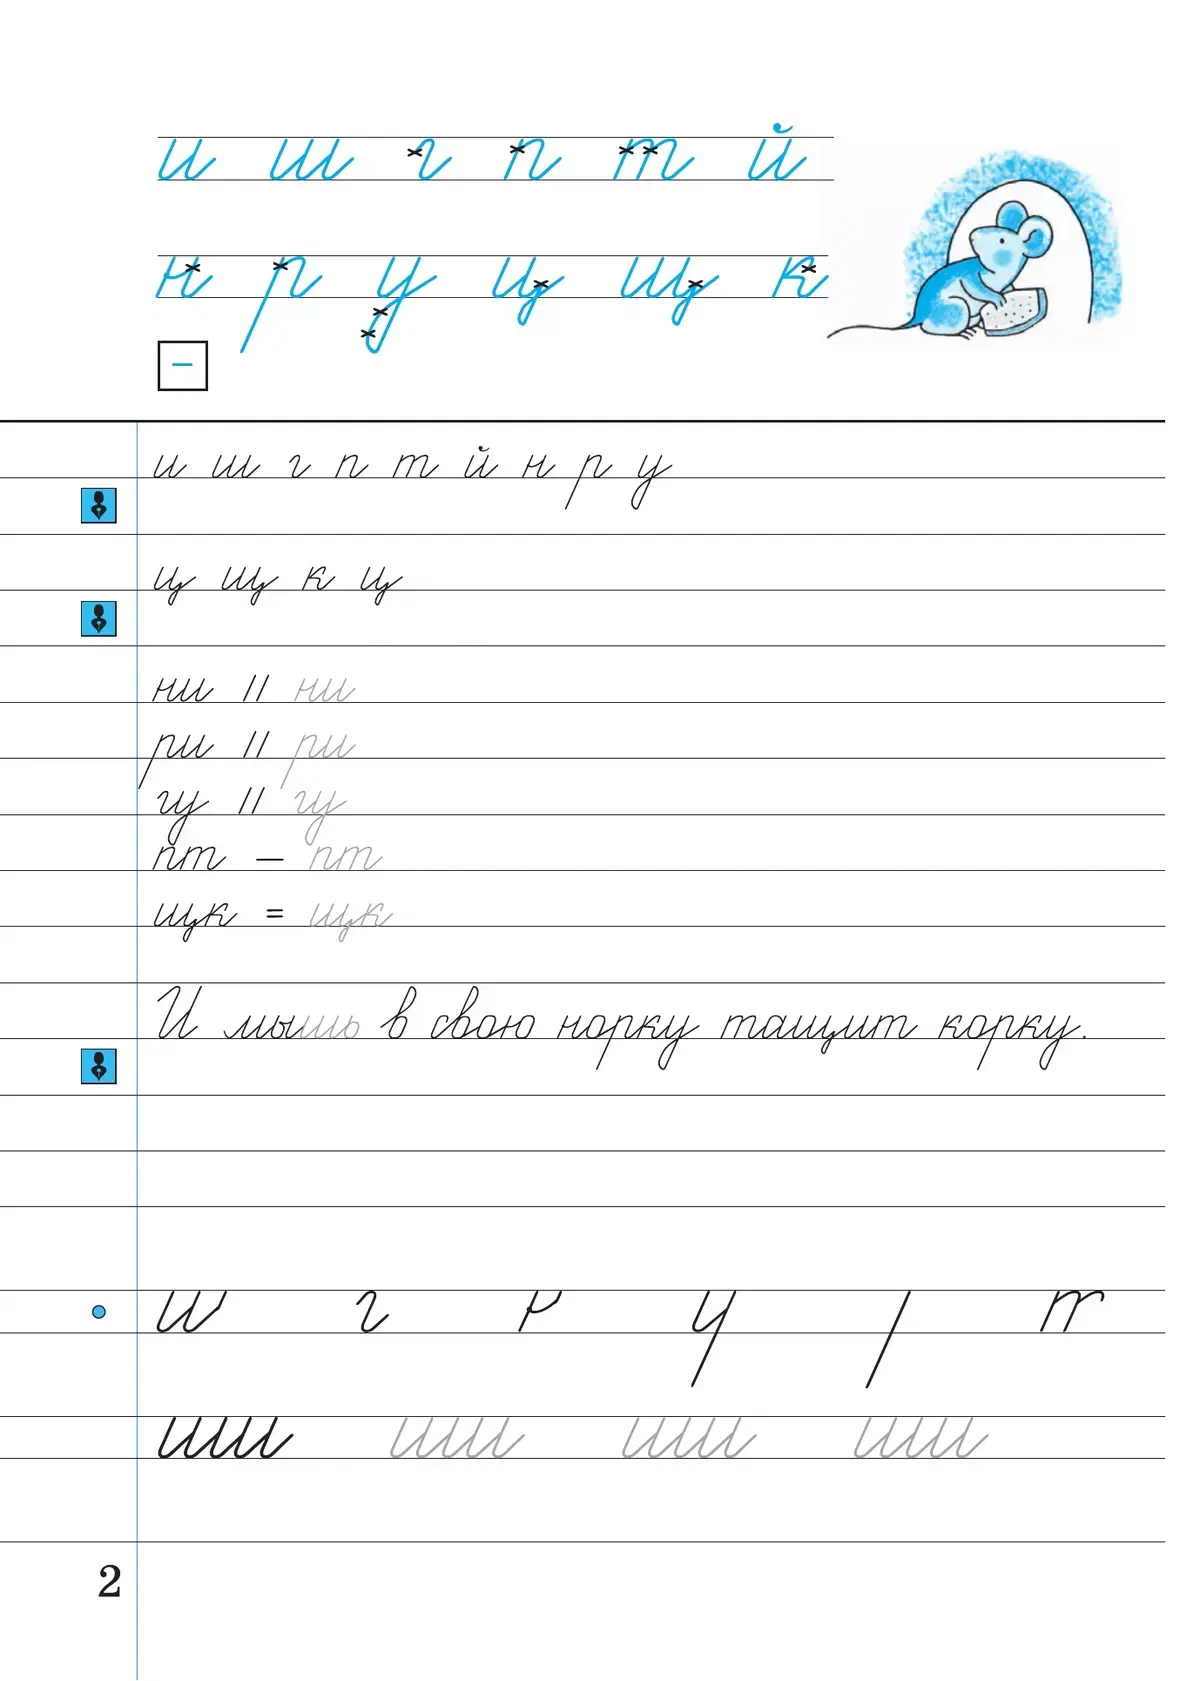 и ш г п т й
н р у ц щ к
–
и ш г п т й н р у
ц щ к ц
ни || ни
ри || ри
гу || гу
пт – пт
щк = щк
И мышь в свою норку тащит корку.
2